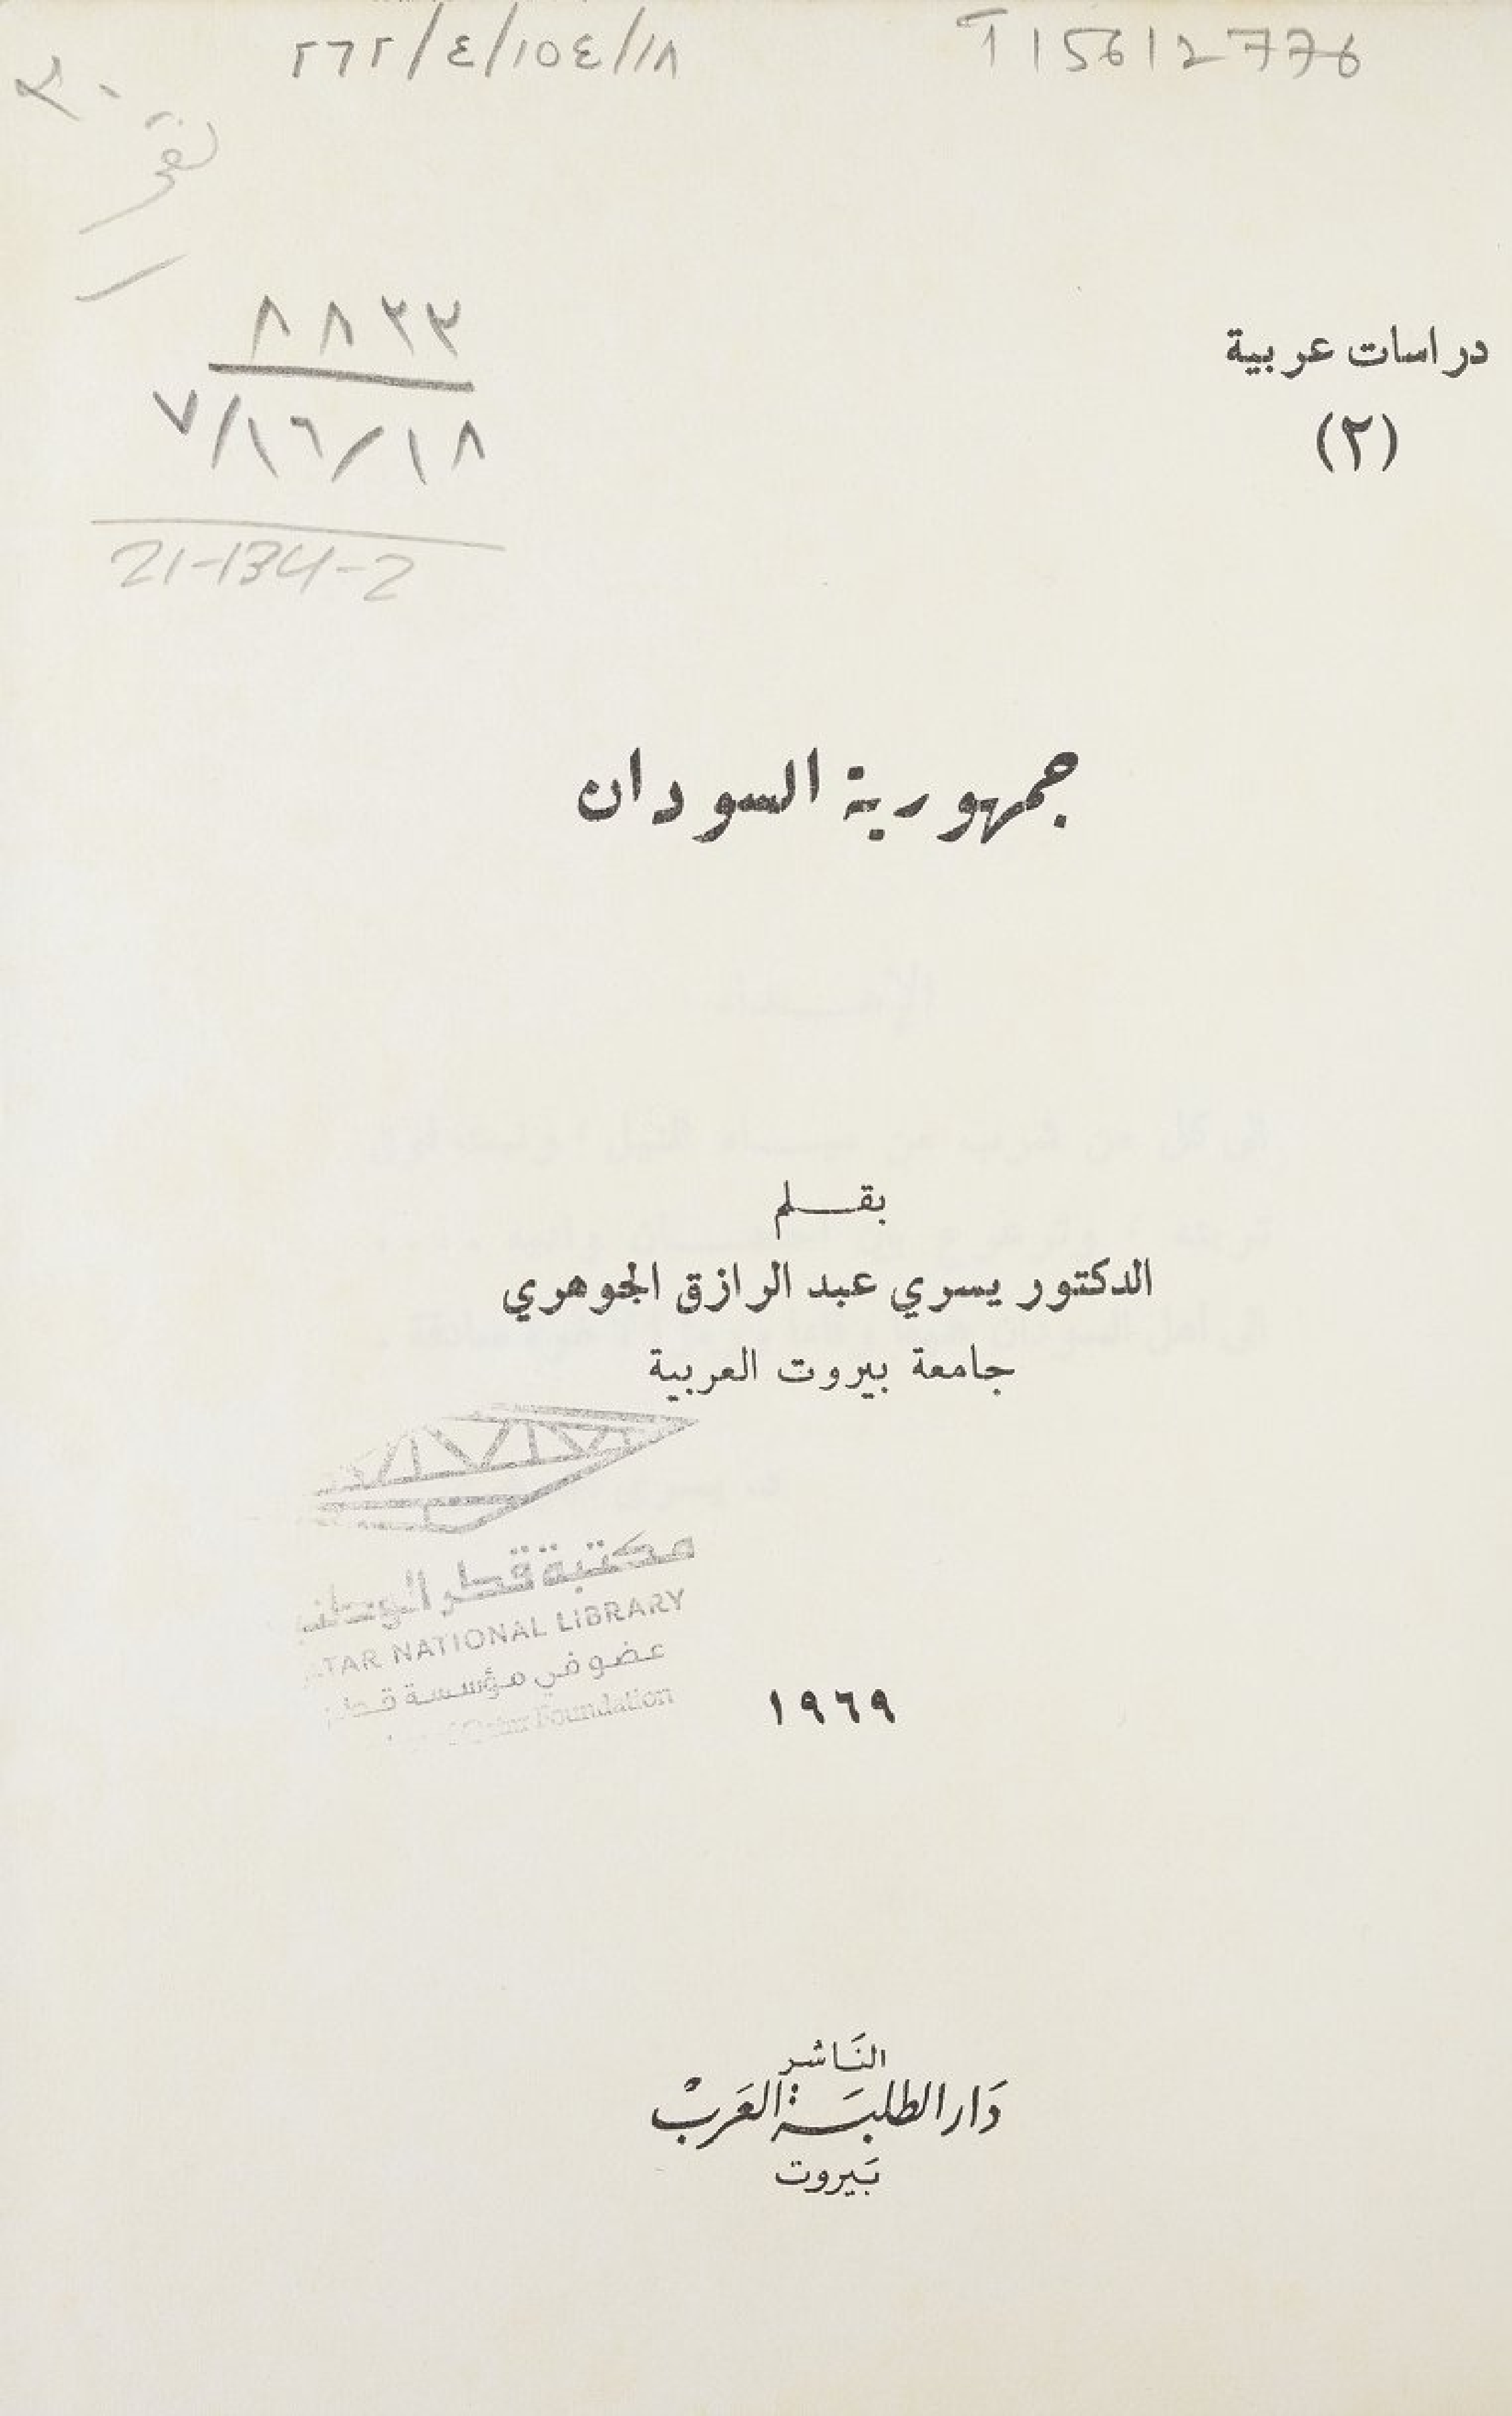 ٢٦٢/٤/١٥٤/١٨
115612776
٨٨٢٣
٧/١٦/١٨
21-134-2
دراسات عربية
(٢)
جمهورية السودان
بقلم
الدكتور يسري عبد الرازق الجوهري
جامعة بيروت العربية
مكتبة قطر
NATIONAL LIBRARY
عضو في مؤسسة قطر
Qatar Foundation
١٩٦٩
النَاشر
دَار الطلبَة العَربْ
بَيروت